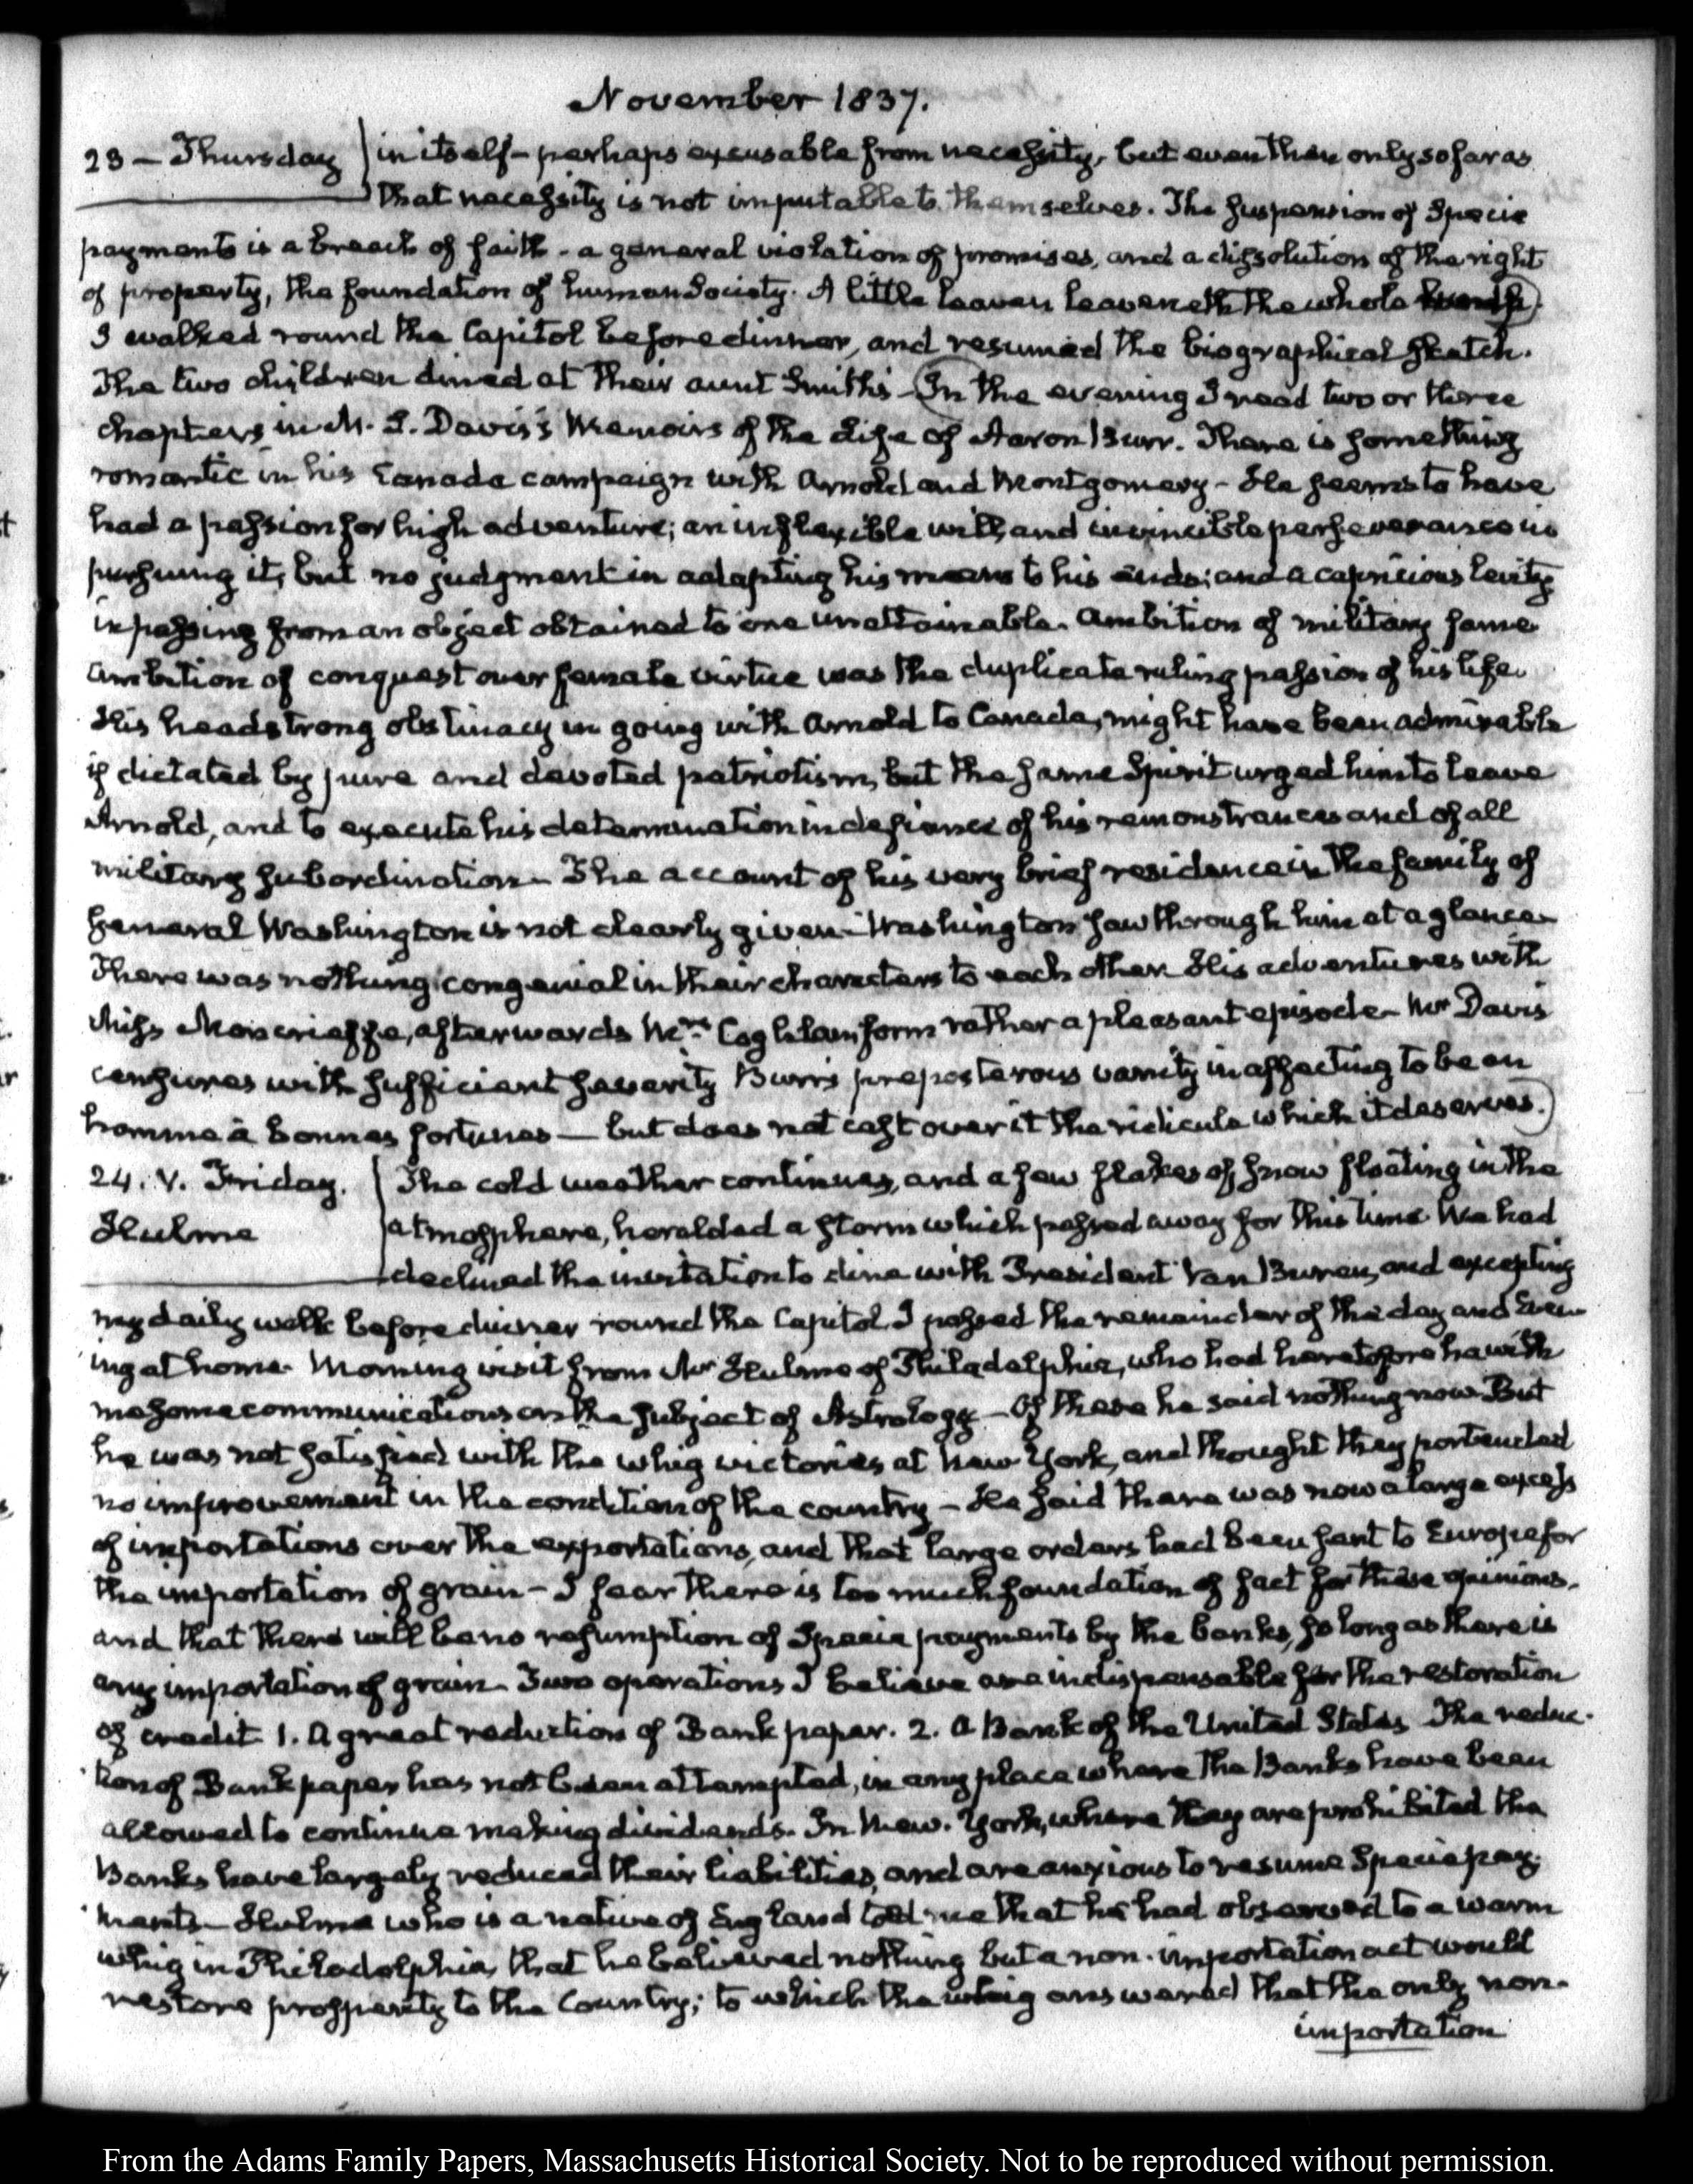 November 1837.
23 — Thursday in itself — perhaps excusable from necessity, but even then only so far as
that necessity is not imputable to themselves. The suspension of Specie
payments is a breach of faith - a general violation of promises, and a dissolution of the right
of property, the foundation of human Society. A little leaven leaveneth the whole
I walked round the Capitol before dinner, and resumed the biographical sketch.
The two children dined at their aunt Smith's - In the evening I read two or three
chapters in M. L. Davis's Memoirs of the Life of Aaron Burr. There is something
romantic in his Canada campaign with Arnold and Montgomery - He seems to have
had a passion for high adventure; an inflexible will, and invincible perseverance in
pursuing it, but no judgment in adapting his means to his ends; and a capricious levity
in passing from an object obtained to one unattainable. Ambition of military fame
ambition of conquest over female virtue was the duplicate ruling passion of his life.
His headstrong obstinacy in going with Arnold to Canada, might have been admirable
if dictated by pure and devoted patriotism, but the same Spirit urged him to leave
Arnold, and to execute his determination in defiance of his remonstrances and of all
military subordination - The account of his very brief residence in the family of
General Washington is not clearly given - Washington saw through him at a glance -
There was nothing congenial in their characters to each other. His adventures with
Miss Moncrieffe, afterwards Mrs. Coghlan form rather a pleasant episode - Mr Davis
censures with sufficient severity Burr's preposterous vanity in affecting to be an
homme à bonnes fortunes — but does not cast over it the ridicule which it deserves.
24. V. Friday. The cold weather continues, and a few flakes of snow floating in the
Hulme atmosphere, heralded a storm which passed away for this time. We had
declined the invitation to dine with President Van Buren, and excepting
my daily walk before dinner round the Capitol I passed the remainder of the day and Even-
ing at home. Morning visit from Mr Hulme of Philadelphia, who had heretofore had with
me some communications on the subject of Astrology - Of these he said nothing now. But
he was not satisfied with the whig victories at New York, and thought they portended
no improvement in the condition of the country - He said there was now a large excess
of importations over the exportations, and that large orders had been sent to Europe for
the importation of grain - I fear there is too much foundation of fact for these opinions.
and that there will be no resumption of Specie payments by the banks, so long as there is
any importation of grain. Two operations I believe are indispensable for the restoration
of credit. 1. A great reduction of Bank paper. 2. A Bank of the United States. The reduc-
tion of Bank paper has not been attempted, in any place where the Banks have been
allowed to continue making dividends. In New-York, where they are prohibited the
Banks have largely reduced their liabilities, and are anxious to resume Specie pay-
ments - Hulme who is a native of England told me that he had observed to a warm
whig in Philadelphia, that he believed nothing but a non-importation act would
restore prosperity to the Country; to which the whig answered that the only non-
importation
From the Adams Family Papers, Massachusetts Historical Society. Not to be reproduced without permission.